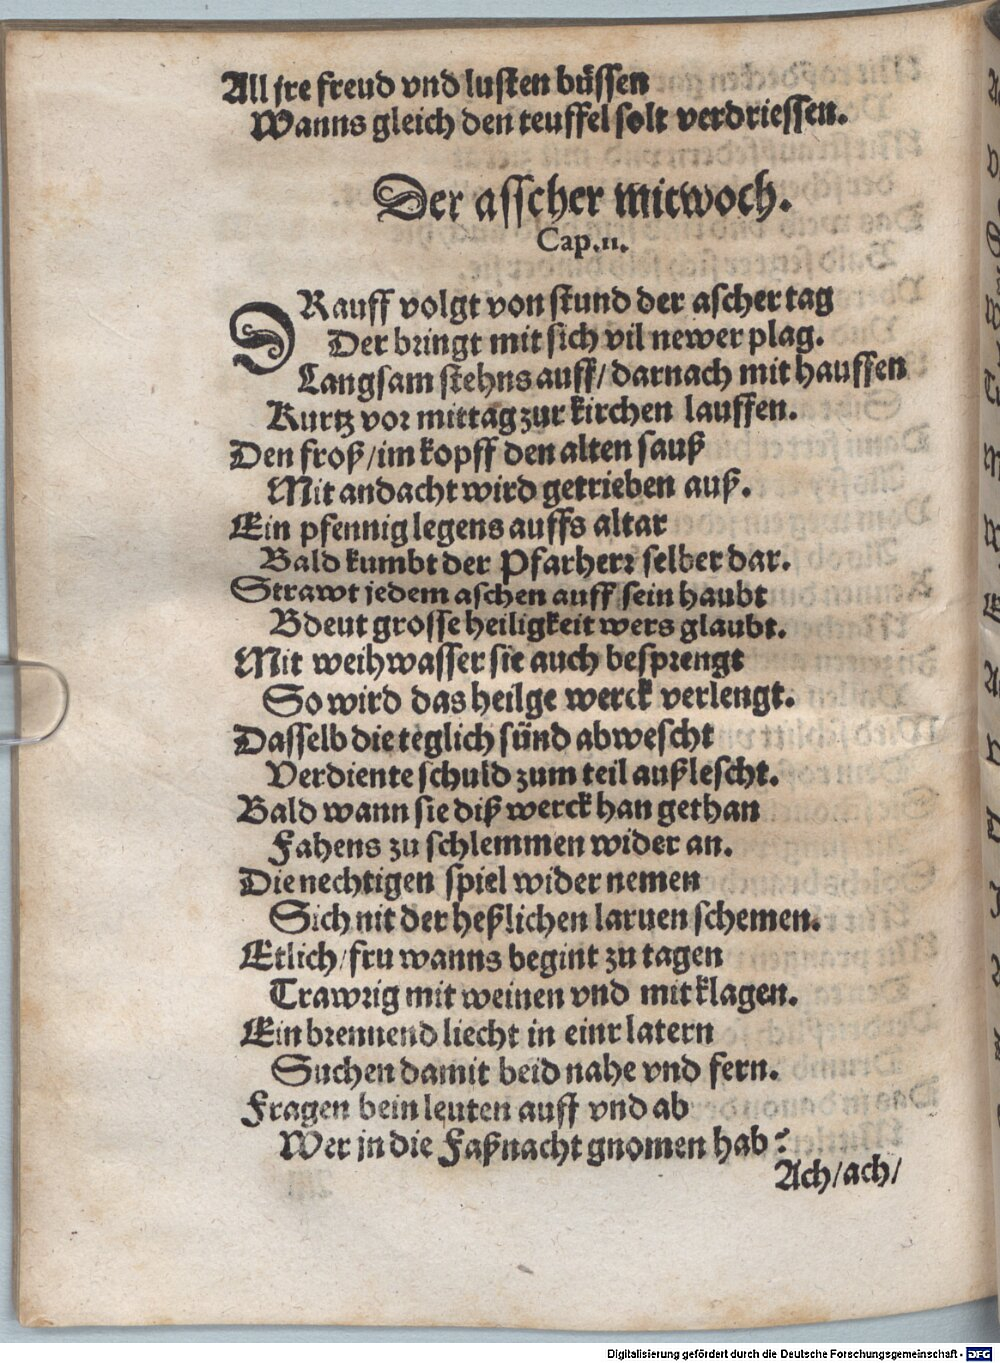 All jre freud vnd lusten büssen
Wanns gleich den teuffel solt verdriessen.
Der asscher mitwoch.
Cap. 11.
DRauff volgt von stund der ascher tag
Der bringt mit sich vil newer plag.
Langsam stehns auff / darnach mit hauffen
Kurtz vor mittag zur kirchen lauffen.
Den froß / im kopff den alten sauß
Mit andacht wird getrieben auß.
Ein pfennig legens auffs altar
Bald kumbt der Pfarherr selber dar.
Strawt jedem aschen auff sein haubt
Bdeut grosse heiligkeit wers glaubt.
Mit weihwasser sie auch besprengt
So wird das heilge werck verlengt.
Dasselb die teglich sünd abwescht
Verdiente schuld zum teil außlescht.
Bald wann sie diß werck han gethan
Fahens zu schlemmen wider an.
Die nechtigen spiel wider nemen
Sich nit der heßlichen laruen schemen.
Etlich / fru wanns begint zu tagen
Trawrig mit weinen vnd mit klagen.
Ein brennend liecht in einr latern
Suchen damit beid nahe vnd fern.
Fragen bein leuten auff vnd ab
Wer jn die Faßnacht gnomen hab?
Ach / ach /
Digitalisierung gefördert durch die Deutsche Forschungsgemeinschaft - DFG